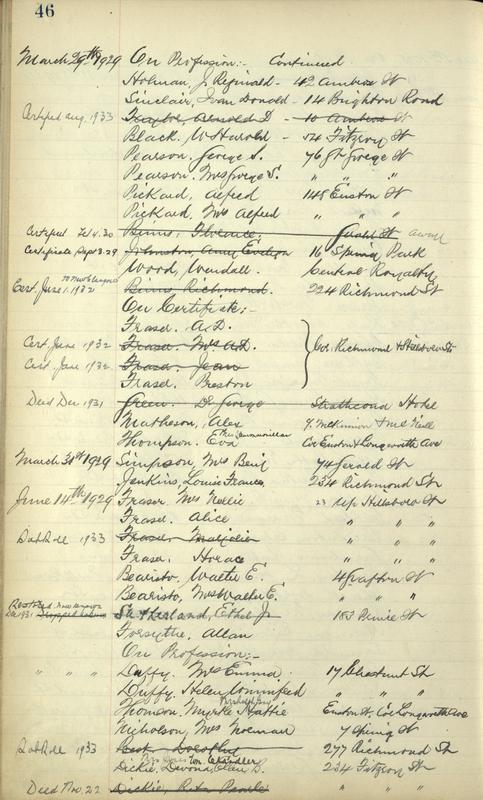 46
March 29th 1929 On Profession:- Continued
Holman, J. Reginald - 42 Ambrose St
Sinclair, Ivan Donald - 14 Brighton Road
Certified Aug. 1933 Taylor, Arnold D - 10 Ambrose St
Black. W Harold - 54 Fitzroy St
Pearson. George S. 76 Gt George St
Pearson. Mrs George S. " " "
Pickard, Alfred 148 Euston St
Pickard, Mrs Alfred " "
Certified Feb 4. 30 Binns, Florence, St away
Certificate Sept 3. 29 Johnston, Evelyn 16 Spring Park
Wood, Wendall. Central Royalty
Cert. June 1. 1932 Binns Richmond. 224 Richmond St
On Certificate:-
Fraser. A.D.
Cert June 1932 Fraser. Mrs A.D. Cor. Richmond & Hillsboro Sts
Cert. June 1932 Fraser. Jean
Fraser. Preston
Deed Dec 1931 Green. De George Strathcona Hotel
Matheson, Alex
Thompson. Eva Cor Euston & Longworth Ave
March 31st 1929 Simpson, Mrs Benj 74 Gerald St
Jenkins, Louise Frances 234 Richmond St
June 14th 1929 Fraser Mrs Nellie 23 Up Hillsboro St
Fraser. Alice " " "
Dab Roll 1933 Fraser Marjorie " " "
Fraser. Horace " " "
Bearisto, Walter E. 4 Grafton St
Bearisto, Mrs Walter E. " " "
Dec 1931 Sutherland, Ethel J. 183 Prince St
Forsythe. Allan
On Profession:-
" " " Duffy. Mrs Emma 17 Chestnut St
Duffy. Helen Winnifred " " "
Thomson. Myrtle Hattie Euston St. Cor Longworth Ave
Nicholson, Mrs Norman 7 Spring St
Dab Roll 1933 Dorothy 277 Richmond St
Dickie, 234 Fitzroy St
Deed Nov. 22 Dickie, Rita Pearle " " "